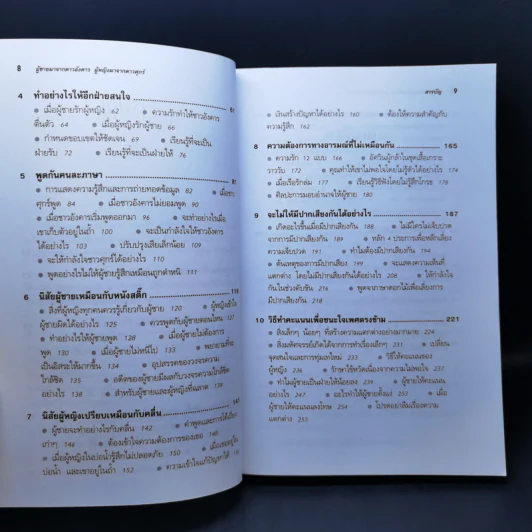 8 ผู้ชายมาจากดาวอังคาร ผู้หญิงมาจากดาวศุกร์
4 ทำอย่างไรให้อีกฝ่ายสนใจ 61
● เมื่อผู้ชายรักผู้หญิง 62 ● ความรักทำให้ชาวอังคาร
ตื่นตัว 64 ● เมื่อผู้หญิงรักผู้ชาย 66
● กำหนดขอบเขตให้ชัดเจน ● เรียนรู้ที่จะเป็น
ฝ่ายรับ 72 ● เรียนรู้ที่จะเป็นฝ่ายให้ 76
5 พูดกันคนละภาษา
● การแสดงความรู้สึกและการถ่ายทอดข้อมูล 82 ● เมื่อชาว
ศุกร์พูด 84 ● เมื่อชาวอังคารไม่ยอมพูด 90
● เมื่อชาวอังคารเริ่มพูดออกมา 96 ● จะทำอย่างไรเมื่อ
เขาเก็บตัวอยู่ในถ้ำ 100 ● จะเป็นกำลังใจให้ชาวอังคาร
ได้อย่างไร 103 ● ปรับปรุงเสียเล็กน้อย 109
● จะให้กำลังใจชาวศุกร์ได้อย่างไร 110
● พูดอย่างไรไม่ให้ผู้ชายรู้สึกเหมือนถูกตำหนิ 111
6 นิสัยผู้ชายเหมือนกับหนังสติ๊ก 119
● สิ่งที่ผู้หญิงทุกคนควรรู้เกี่ยวกับผู้ชาย 120 ● ผู้หญิงเข้าใจ
ผู้ชายผิดได้อย่างไร 125 ● ควรพูดกับผู้ชายตอนไหน 127
● ทำอย่างไรให้ผู้ชายพูด 128 ● เมื่อผู้ชายไม่ต้องการ
พูด 130 ● เมื่อผู้ชายไม่หนีไป 133 ● พยายามที่จะ
เป็นอิสระให้มากขึ้น 134 ● อุปสรรคของวงจรความ
ใกล้ชิด 135 ● อดีตของผู้ชายมีผลกับวงจรความใกล้ชิด
ใกล้ชิด 138 ● สำหรับผู้ชายและผู้หญิงที่ฉลาด 140
7 นิสัยผู้หญิงเปรียบเหมือนกับคลื่น 141
● ผู้ชายจะทำอย่างไรกับคลื่น 142 ● คำพูดและการโต้เถียง
เก่าๆ 146 ● ต้องเข้าใจความต้องการของเธอ 148
● เมื่อผู้หญิงในบ่อน้ำรู้สึกไม่ปลอดภัย 150 ● เมื่อเธออยู่ใน
บ่อน้ำ และเขาอยู่ในถ้ำ 152 ● ความเข้าใจแก้ปัญหาได้
สารบัญ 9
● เงินสร้างปัญหาได้อย่างไร 160 ● ต้องให้ความสำคัญกับ
ความรู้สึก 162
8 ความต้องการทางอารมณ์ที่ไม่เหมือนกัน 165
● ความรัก 12 แบบ 166 ● อัศวินผู้กล้าในชุดเสื้อเกราะ
วาววับ 172 ● คุณทำให้เขาไม่พอใจโดยไม่รู้ตัวได้อย่างไร 174
● เมื่อเรือรักล่ม 177 ● เรียนรู้วิธีฟังโดยไม่รู้สึกโกรธ 178
● ศิลปะการมอบอำนาจให้ผู้ชาย 180
9 จะไม่ให้มีปากเสียงกันได้อย่างไร 187
● เกิดอะไรขึ้นเมื่อมีปากเสียงกัน 188 ● ไม่มีใครไม่เจ็บปวด
จากการมีปากเสียงกัน 189 ● หลัก 4 ประการเพื่อหลีกเลี่ยง
ความเจ็บปวด 190 ● ทำไมเราถึงมีปากเสียงกัน 194
● ต้นเหตุของการมีปากเสียง 199 ● จะแสดงความเห็นที่
แตกต่าง โดยไม่มีปากเสียงกันได้อย่างไร 208 ● ให้กำลังใจ
กันในช่วงคับขัน 216 ● พูดจาภาษาดอกไม้เพื่อเลี่ยงการ
มีปากเสียงกัน 218
10 วิธีทำคะแนนเพื่อชนะใจเพศตรงข้าม 221
● สิ่งเล็กๆ น้อยๆ ที่สร้างความแตกต่างอย่างมากมาย 224
● สิ่งมหัศจรรย์เกิดได้จากการทำเรื่องเล็กๆ 229 ● เปลี่ยน
จุดสนใจและการทุ่มเทใหม่ 233 ● วิธีให้คะแนนของ
ผู้หญิง 236 ● รักษาไข้หวัดเนื่องจากความไม่พอใจ 241
● ทำไมผู้ชายเป็นฝ่ายให้น้อยลง 242 ● ผู้ชายให้คะแนน
อย่างไร 247 ● อะไรทำให้ผู้ชายตั้งแง่ 251 ● เมื่อ
ผู้ชายให้คะแนนลงโทษ 254 ● โปรดอย่าลืมเรื่องความ
แตกต่าง 263